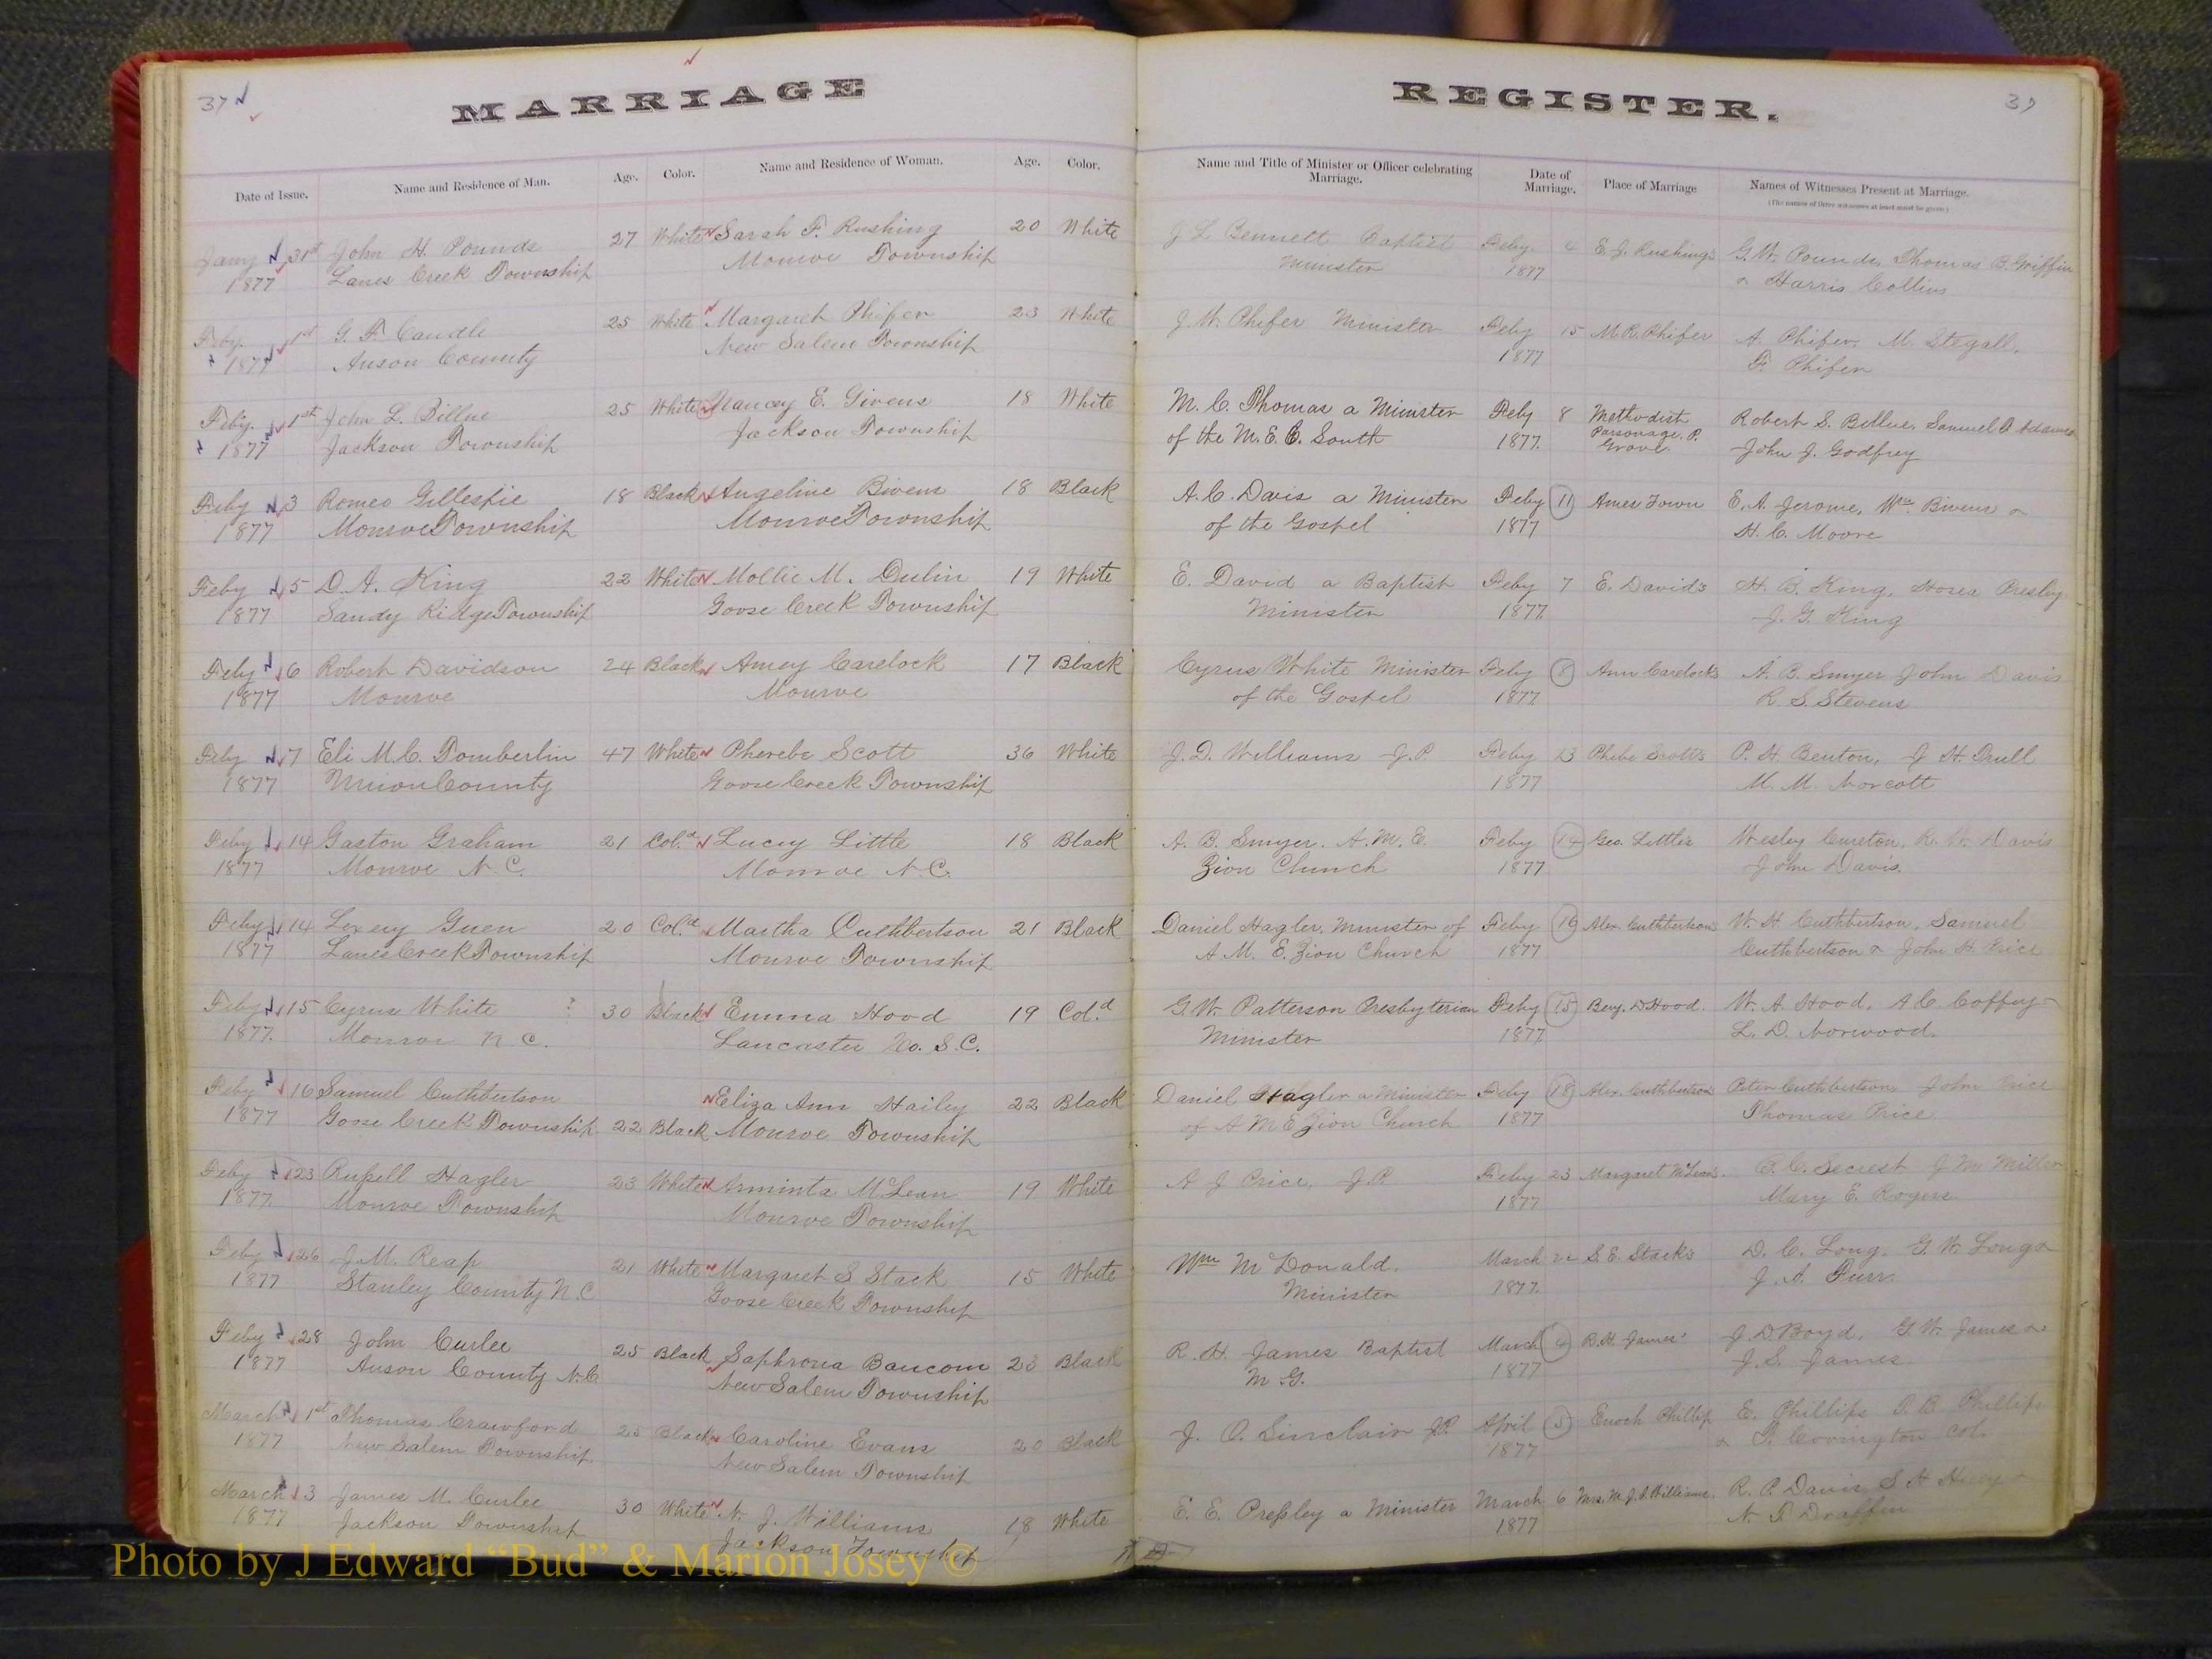 37
MARRIAGE
REGISTER.
37
Date of Issue.
Name and Residence of Man.
Age.
Color.
Name and Residence of Woman.
Age.
Color.
Name and Title of Minister or Officer celebrating
Marriage.
Date of
Marriage.
Place of Marriage
Names of Witnesses Present at Marriage.
(The names of three witnesses at least must be given)
Jany 31st John H. Pounds 27 White Sarah F. Rushing 20 White J L Bennett Baptist Feby 4 E. J. Rushing's G. W. Pounds, Thomas B. Griffin
1877 Lanes Creek Township Monroe Township Minister 1877 & Harris Collins
Feby. 1st G. F. Caudle 25 White Margaret Phifer 23 White J. W. Phifer Minister Feby 15 M. R. Phifer A. Phifer, M. Stegall,
1877 Anson County New Salem Township 1877 F. Phifer
Feby. 1st John L. Billue 25 White Nancy E. Givens 18 White M. C. Thomas a Minister Feby 8 Methodist Robert S. Billue, Samuel
1877 Jackson Township Jackson Township of the M. E. C. South 1877. Parsonage. P. Grove. John J. Godfrey
Feby 3 Romeo Gillespie 18 Black Angeline Bivens 18 Black A. C. Davis a Minister Feby 11 Ames Town E. A. Jerome, Wm. Bivens &
1877 Monroe Township Monroe Township of the Gospel 1877 H. C. Moore
Feby 5 D. A. King 22 White Mollie M. Dulin 19 White E. David a Baptist Feby 7 E. David's H. B. King, Hosea Presley
1877 Sandy Ridge Township Goose Creek Township Minister 1877. J. G. King
Feby 6 Robert Davidson 24 Black Amey Carelock 17 Black Cyrus White Minister Feby 8 Ann Carelock's A. B. Smyer John Davis
1877 Monroe Monroe of the Gospel 1877 R. S. Stevens
Feby 7 Eli M. C. Tomberlin 47 White Pherebe Scott 36 White J. D. Williams J. P. Feby 13 Phebe Scotts P. H. Benton, J H. Trull
1877 Union County Goose Creek Township 1877 M. M. Norcott
Feby 14 Gaston Graham 21 Col.d Lucey Little 18 Black A. B. Smyer. A. M. E. Feby 14 Geo. Little's Wesley Cureton, R. W. Davis
1877 Monroe N. C. Monroe N. C. Zion Church 1877 John Davis.
Feby 14 20 Col.d Martha Cuthbertson 21 Black Daniel Hagler. Minister of Feby Alex. Cuthbertson W. H. Cuthbertson, Samuel
1877 Lanes Creek Township Monroe Township A. M. E. Zion Church 1877 Cuthbertson & John H. Price
Feby 15 Cyrus White ? 30 Black Emma Hood 19 Col.d G. W. Patterson Presbyterian Feby 15 Benj. D Hood. W. A. Hood, A C. Coffey
1877. Monroe N C. Lancaster Co. S. C. Minister 1877 L. D. Norwood.
Feby 16 Samuel Cuthbertson Eliza Ann Hailey 22 Black Daniel Hagler a Minister Feby 18 Alex. Cuthbertson Peter Cuthbertson John Price
1877 Goose Creek Township 22 Black Monroe Township of A M E Zion Church 1877 Thomas Price
Feby 23 Russell Hagler 23 White Arminta McLean 19 White A J Price, J. P. Feby 23 Margaret McLean's. C. C. Secrest J M Miller
1877. Monroe Township Monroe Township 1877 Mary E. Rogers
Feby 26 J. M. Reap 21 White Margaret S Stack 15 White Wm McDonald. March S. E. Stack's D. C. Long, G. W. Long &
1877 Stanley County N. C Goose Creek Township Minister 1877. J. A. Furr.
Feby 28 John Curlee 25 Black Saphrona Baucom 23 Black R. H. James Baptist March 4 R. H. James' J D Boyd, G. W. James &
1877 Anson County N. C. New Salem Township M. G. 1877 J. S. James.
March 1st Thomas Crawford 25 Black Caroline Evans 20 Black J. O. Sinclair J. P. April 5 Enoch Phillip E. Phillips P. B. Phillips
1877 New Salem Township New Salem Township 1877 & Covington Col.
March 3 James M. Curlee 30 White N. J. Williams 18 White E. E. Pressley a Minister March 6 Mrs. M. J. A. Williams. R. P. Davis, S H
1877 Jackson Township Jackson Township 1877 N. P. Draffin
Photo by J Edward “Bud” & Marion Josey ©